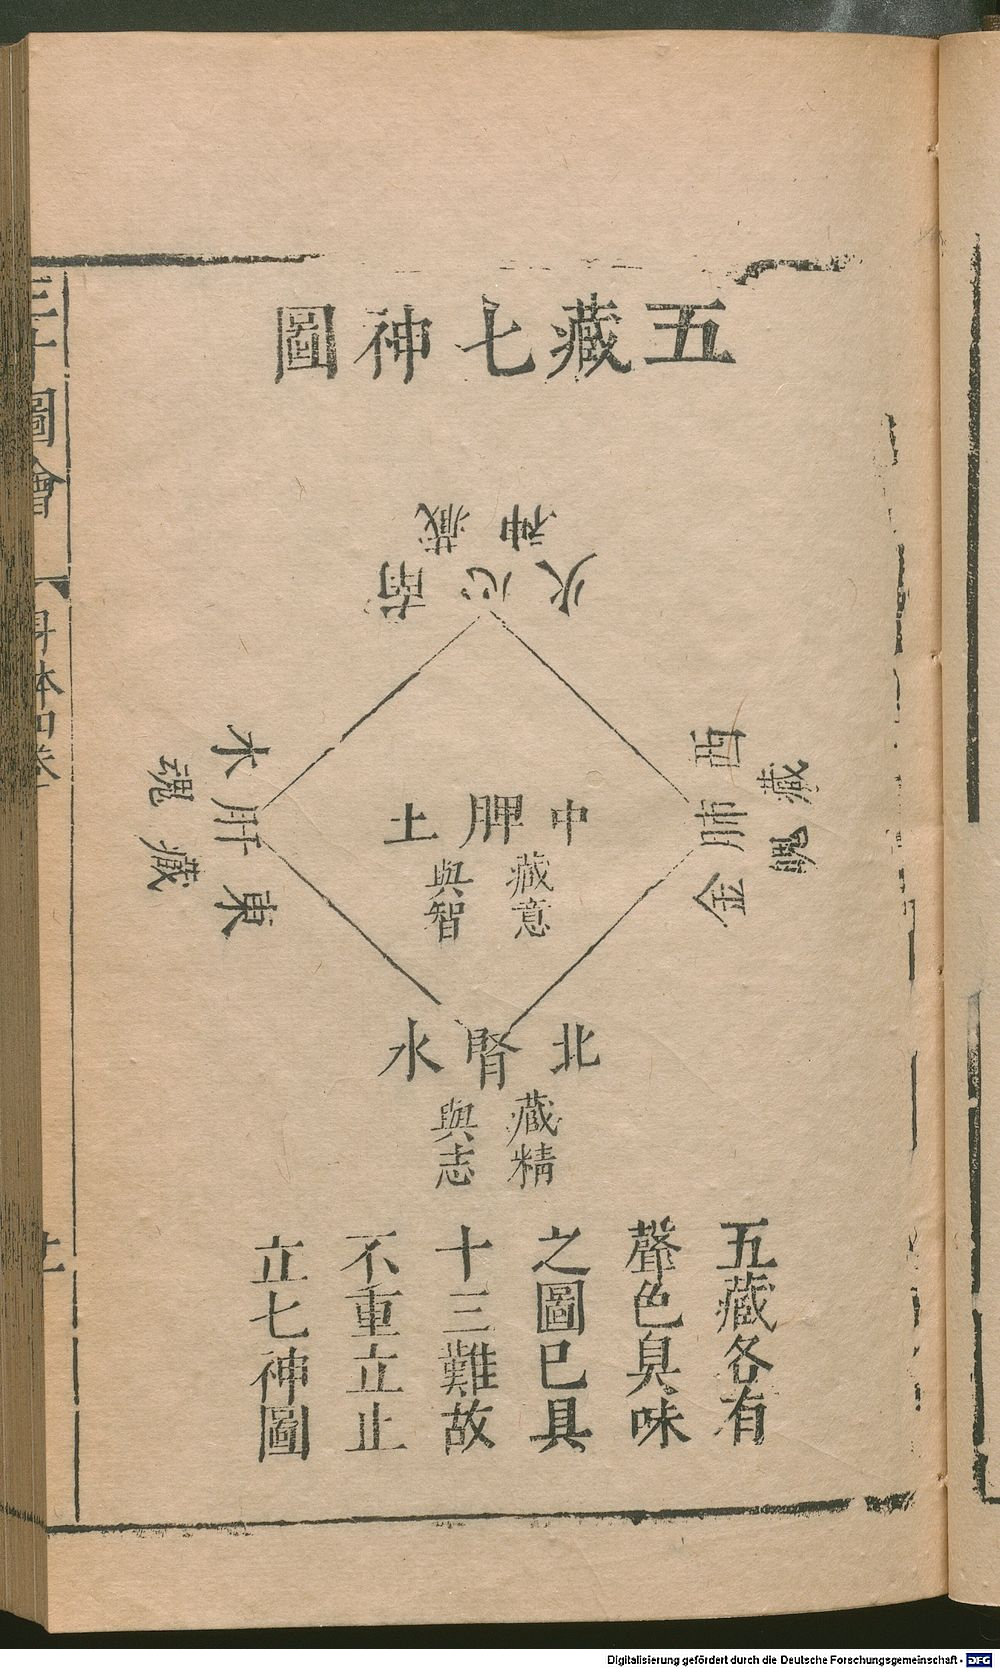 五藏七神圖
南心火
藏神
西肺金
藏魄
中脾土
藏意
與智
東肝木
藏魂
北腎水
藏精
與志
五藏各有
聲色臭味
之圖已具
十三難故
不重立止
立七神圖
三才圖會
身体四卷
Digitalisierung gefördert durch die Deutsche Forschungsgemeinschaft - DFG